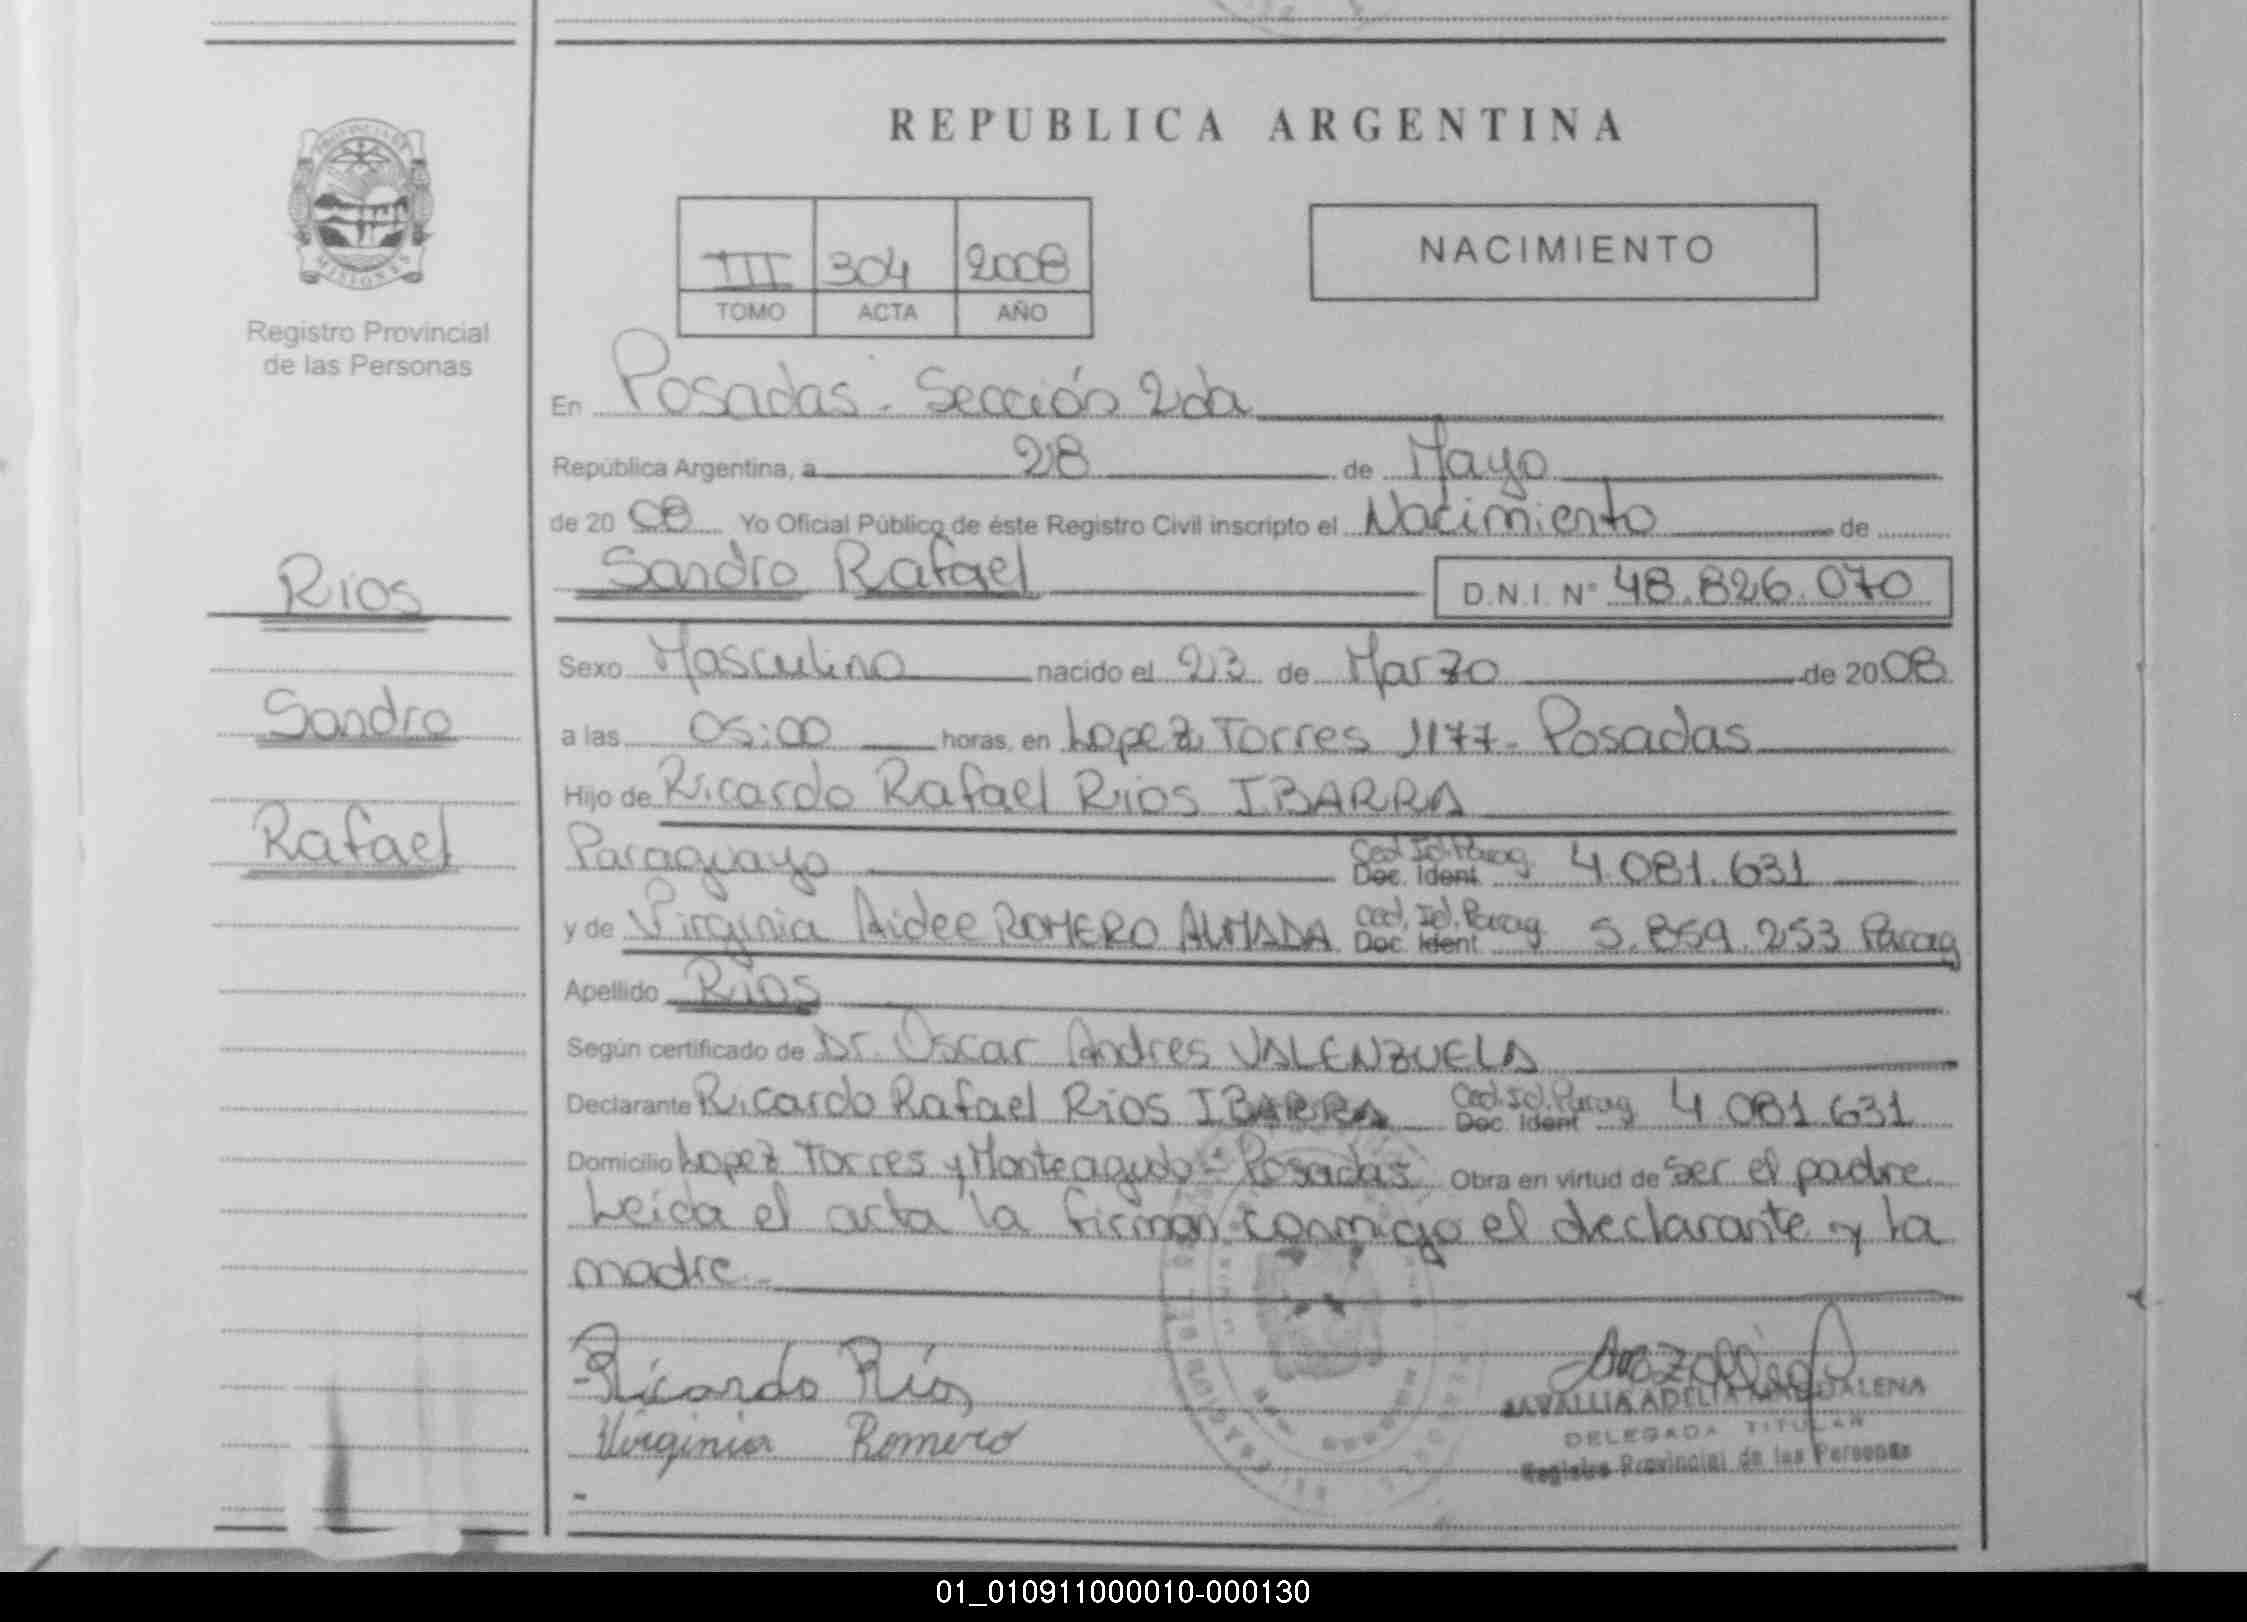 REPUBLICA ARGENTINA
PROVINCIA DE
MISIONES
Registro Provincial
de las Personas
III 304 2008
TOMO ACTA AÑO
NACIMIENTO
En Posadas - Sección 2da
República Argentina, a 28 de Mayo
de 20 08 Yo Oficial Público de éste Registro Civil inscripto el Nacimiento de
Sandro Rafael D.N.I. Nº 48.826.070
Rios
Sandro
Rafael
Sexo Masculino nacido el 23 de Marzo de 2008
a las 05:00 horas, en Lopez Torres 1177 - Posadas
Hijo de Ricardo Rafael Rios IBARRA
Paraguayo Ced. Id. Parag. Doc. Ident 4.081.631
y de Virginia Aidee ROMERO ALMADA Ced. Id. Parag. Doc. Ident 5.859.253 Parag
Apellido Rios
Según certificado de Dr. Oscar Andres VALENZUELA
Declarante Ricardo Rafael Rios IBARRA Ced. Id. Parag. Doc. Ident 4.081.631
Domicilio Lopez Torres y Monteagudo - Posadas Obra en virtud de ser el padre
Leida el acta la firman conmigo el declarante y la
madre
Ricardo Ríos
Virginia Romero
ADELIA MAGDALENA
DELEGADA TITULAR
Registro Provincial de las Personas
01_010911000010-000130